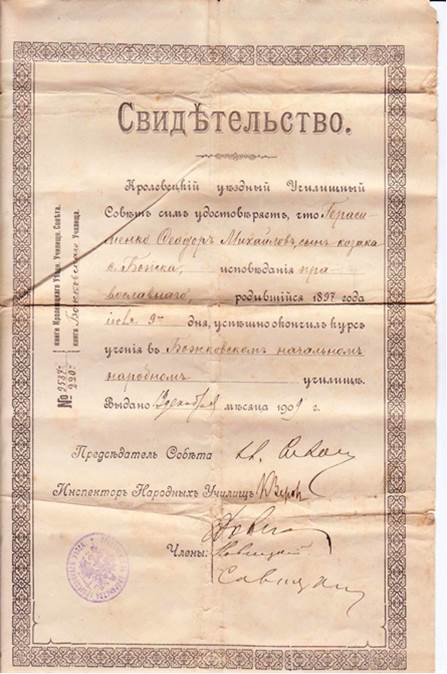 Свидѣтельство.
Кролевецкій уѣздный Училищный
Совѣтъ симъ удостовѣряетъ, что Гераси
менко Ѳеодоръ Михайловъ, сынъ козака
с. Божка, исповѣданія пра
вославнаго, родившійся 1897 года
9 дня, успѣшно окончилъ курсъ
ученія въ Божковскомъ начальномъ
народномъ училищѣ.
Выдано мѣсяца 1909 г.
Предсѣдатель Совѣта
Инспекторъ Народныхъ Училищъ
Члены:
Новицкій
№ 9537
220
книги Кролевецкаго Уѣзд. Училищн. Совѣта.
книга Божковскаго Училища.